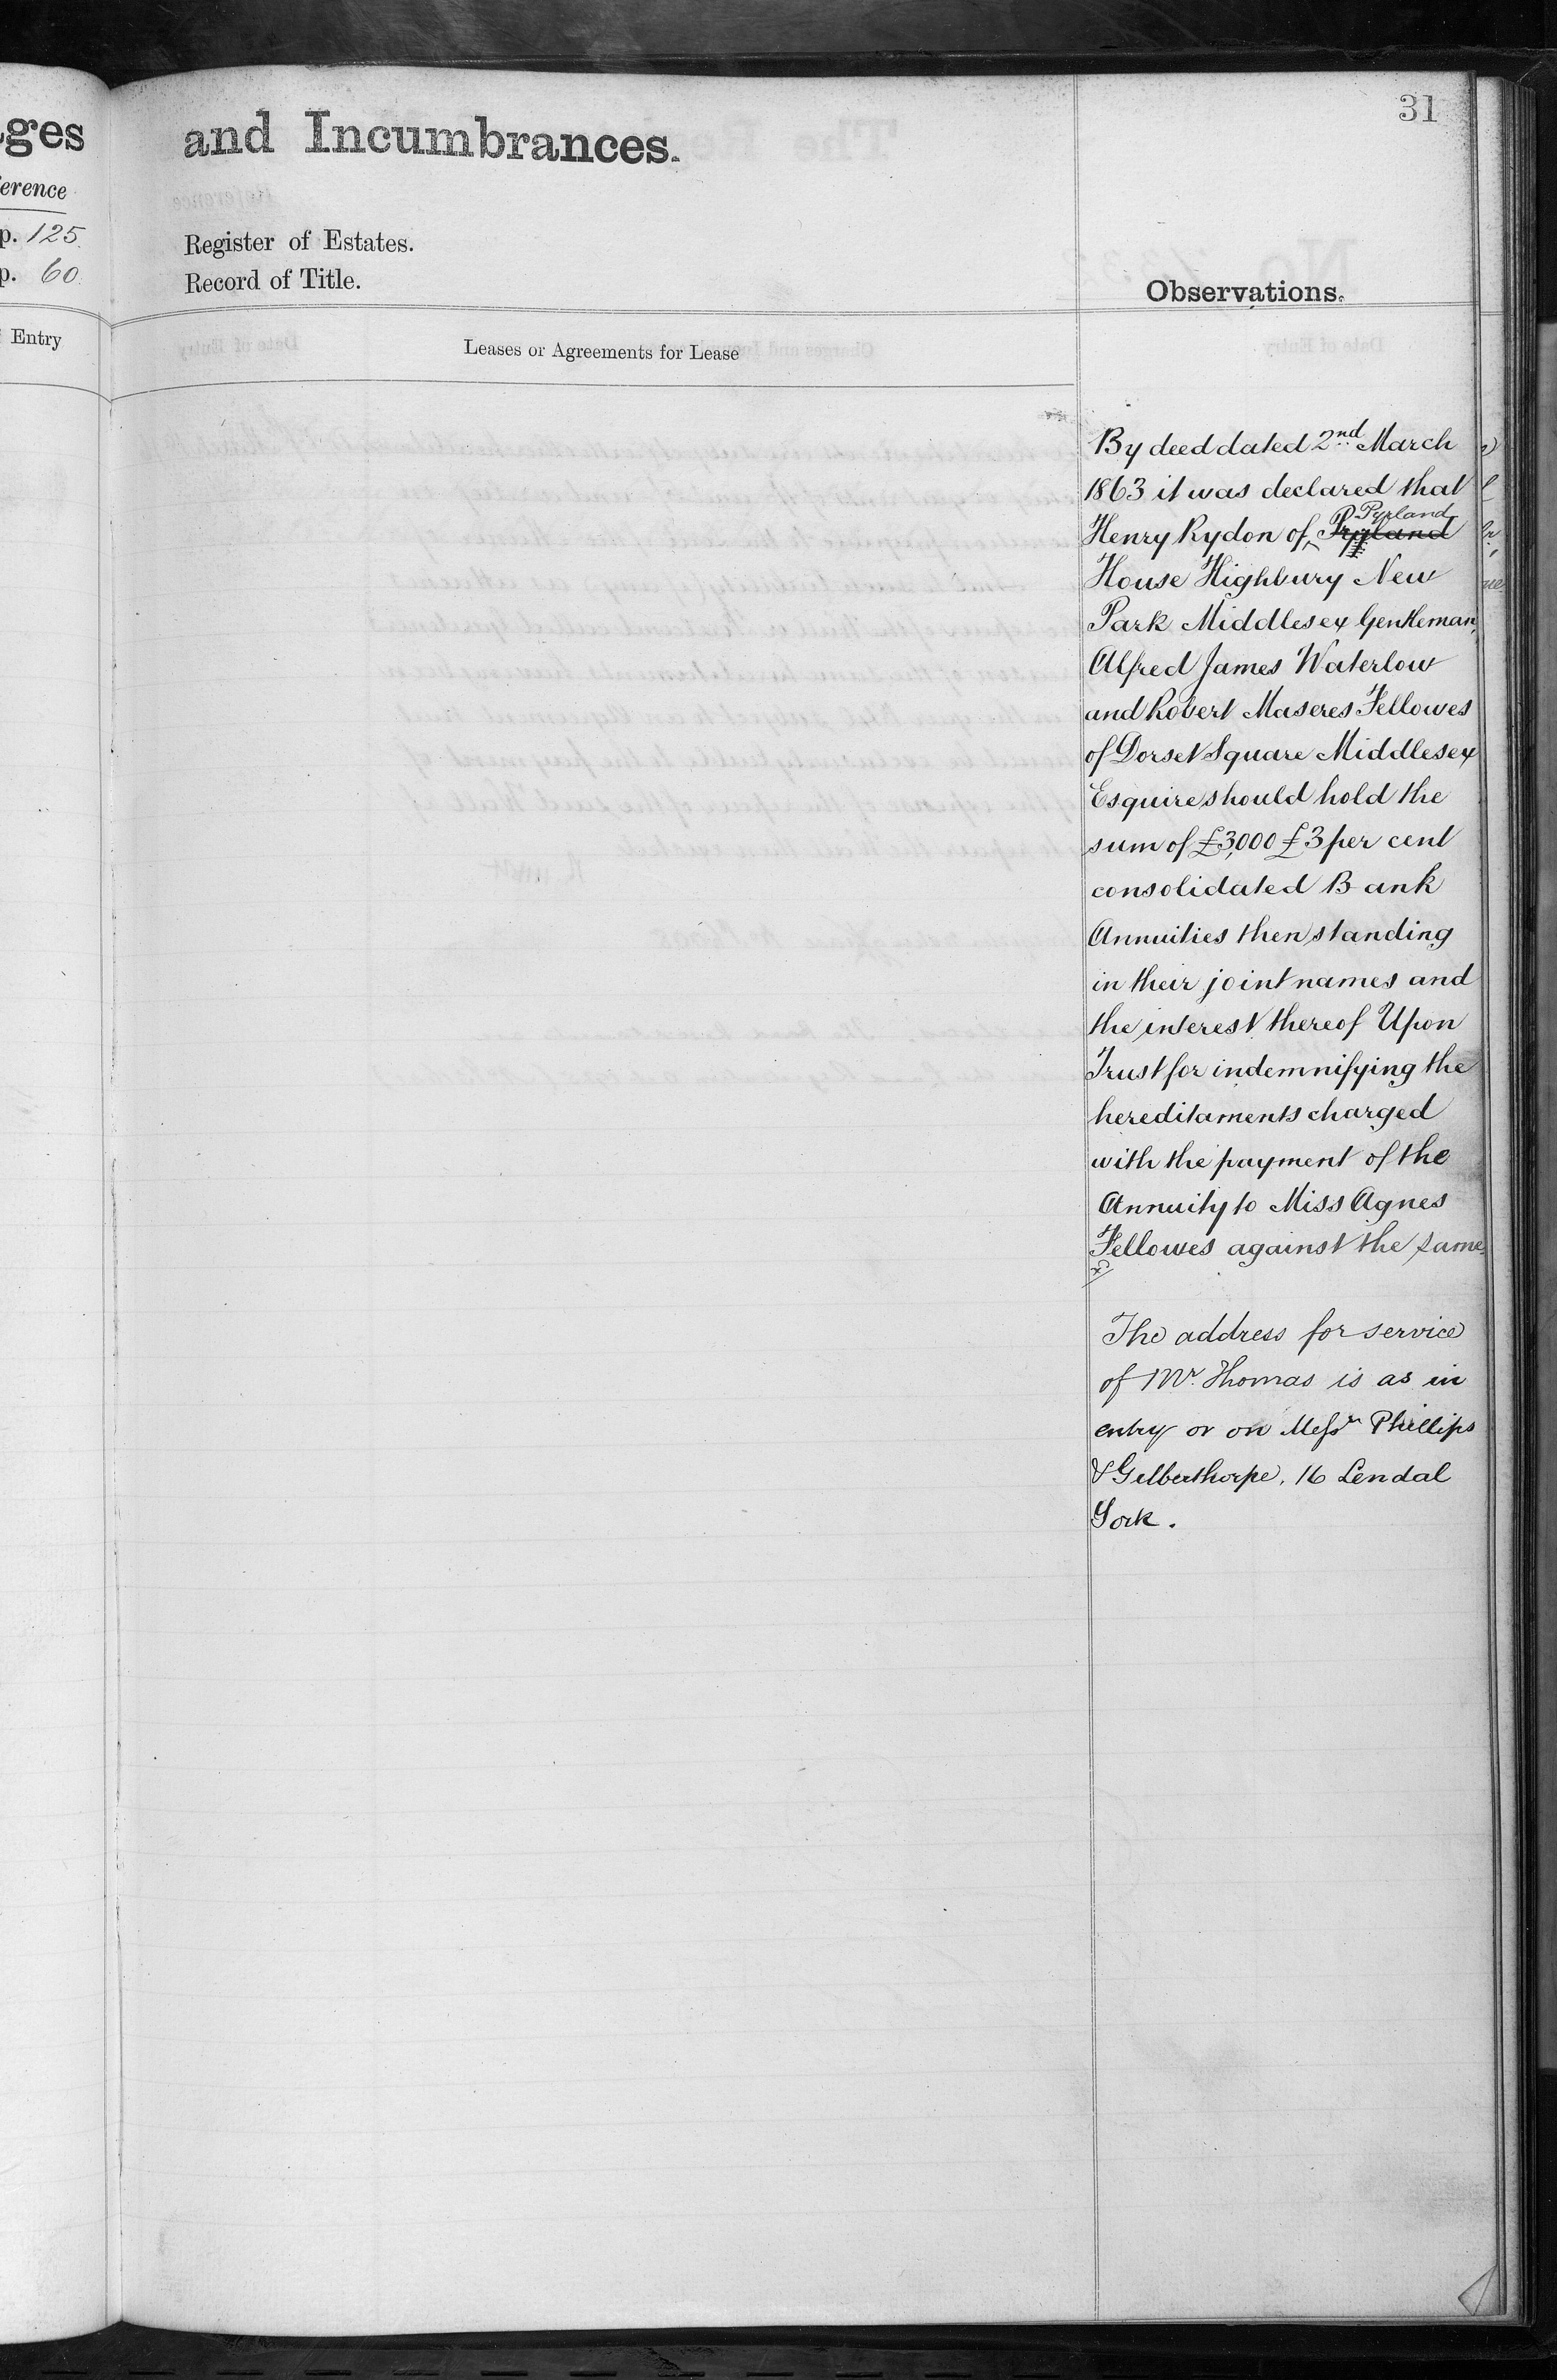 31
ges
and Incumbrances.
erence
p. 125.
Register of Estates.
p. 60.
Record of Title.
Observations.
Entry
Leases or Agreements for Lease
By deed dated 2nd March
1863 it was declared that
Pyrland
Henry Rydon of Pryland
House Highbury New
Park Middlesex Gentleman,
Alfred James Waterlow
and Robert Maseres Fellowes
of Dorset Square Middlesex
Esquire should hold the
sum of £3,000 £3 per cent
consolidated Bank
Annuities then standing
in their joint names and
the interest thereof Upon
Trust for indemnifying the
hereditaments charged
with the payment of the
Annuity to Miss Agnes
Fellowes against the same.
The address for service
of Mr. Thomas is as in
entry or on Messrs Phillips
& Gilberthorpe, 16 Lendal
York.